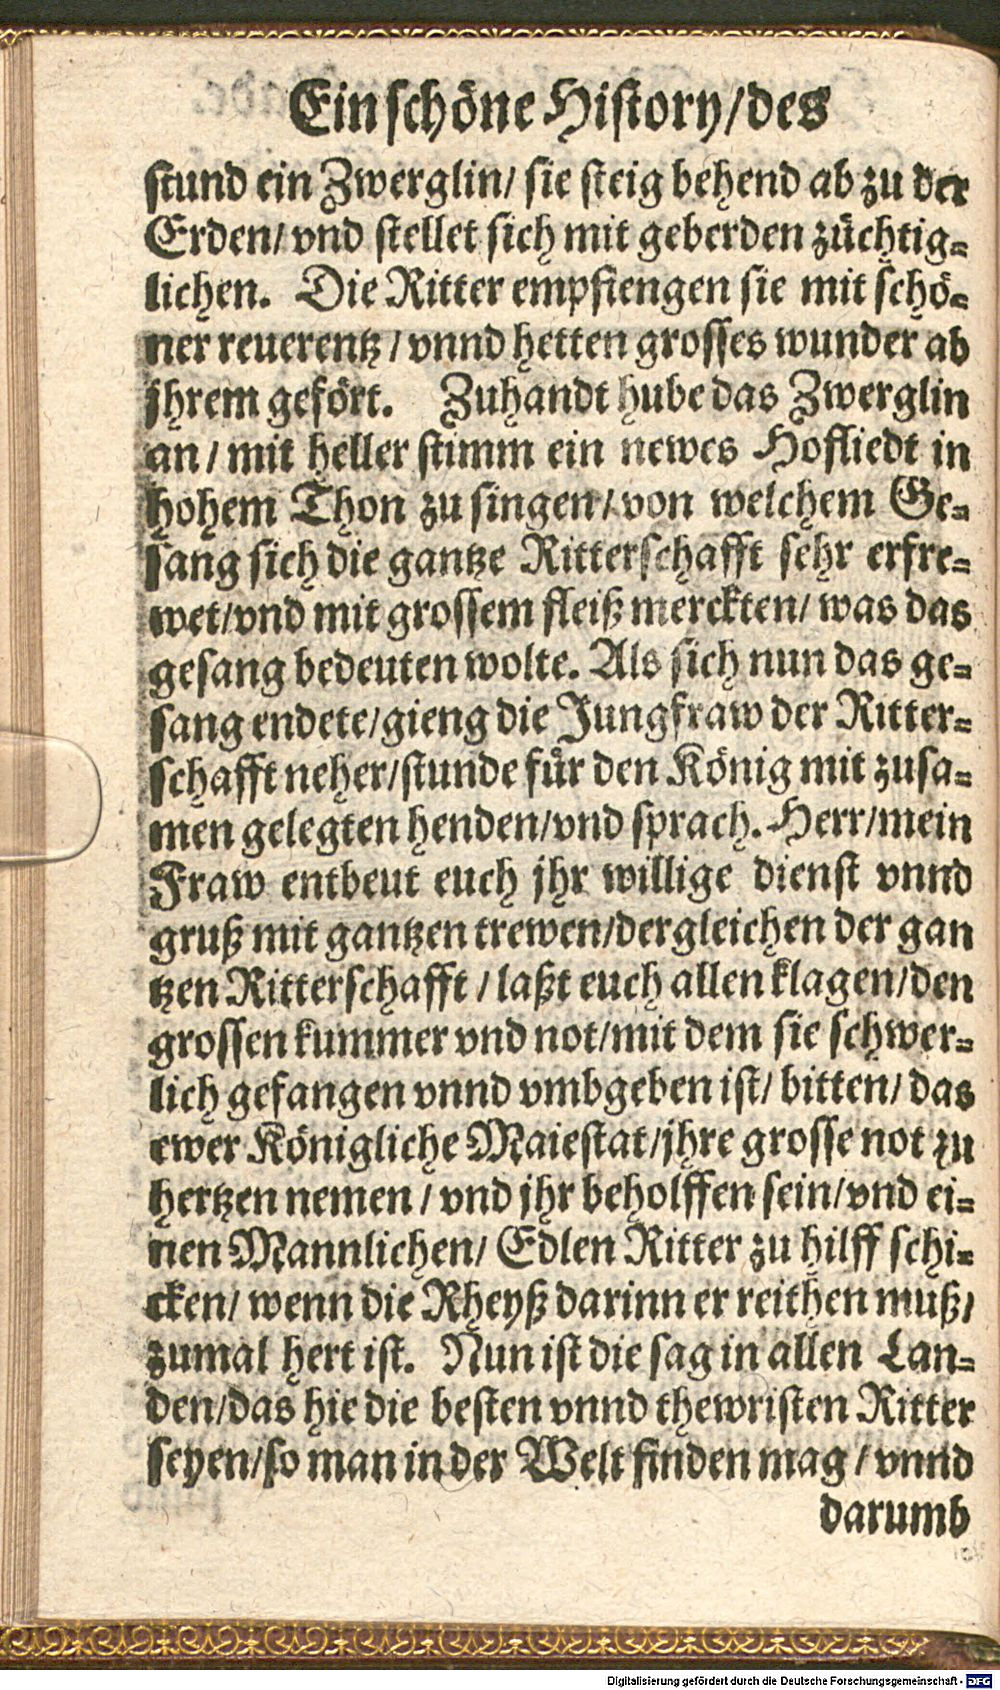 Ein schöne History/des
stund ein Zwerglin/ sie steig behend ab zu der
Erden/ vnd stellet sich mit geberden züchtig⸗
lichen. Die Ritter empfiengen sie mit schö⸗
ner reuerentz / vnnd hetten grosses wunder ab
jhrem gefört. Zuhandt hube das Zwerglin
an / mit heller stimm ein newes Hofliedt in
hohem Thon zu singen / von welchem Ge⸗
sang sich die gantze Ritterschafft sehr erfre⸗
wet/vnd mit grossem fleiß merckten/ was das
gesang bedeuten wolte. Als sich nun das ge⸗
sang endete/gieng die Jungfraw der Ritter⸗
schafft neher/stunde für den König mit zusa⸗
men gelegten henden/vnd sprach. Herr/mein
Fraw entbeut euch jhr willige dienst vnnd
gruß mit gantzen trewen/dergleichen der gan
tzen Ritterschafft / laßt euch allen klagen/den
grossen kummer vnd not/mit dem sie schwer⸗
lich gefangen vnnd vmbgeben ist/ bitten/ das
ewer Königliche Maiestat/jhre grosse not zu
hertzen nemen / vnd jhr beholffen sein/vnd ei⸗
nen Mannlichen/ Edlen Ritter zu hilff schi⸗
cken/ wenn die Rheyß darinn er reithen muß/
zumal hert ist. Nun ist die sag in allen Lan⸗
den/das hie die besten vnnd thewristen Ritter
seyen/so man in der Welt finden mag / vnnd
darumb
Digitalisierung gefördert durch die Deutsche Forschungsgemeinschaft - DFG